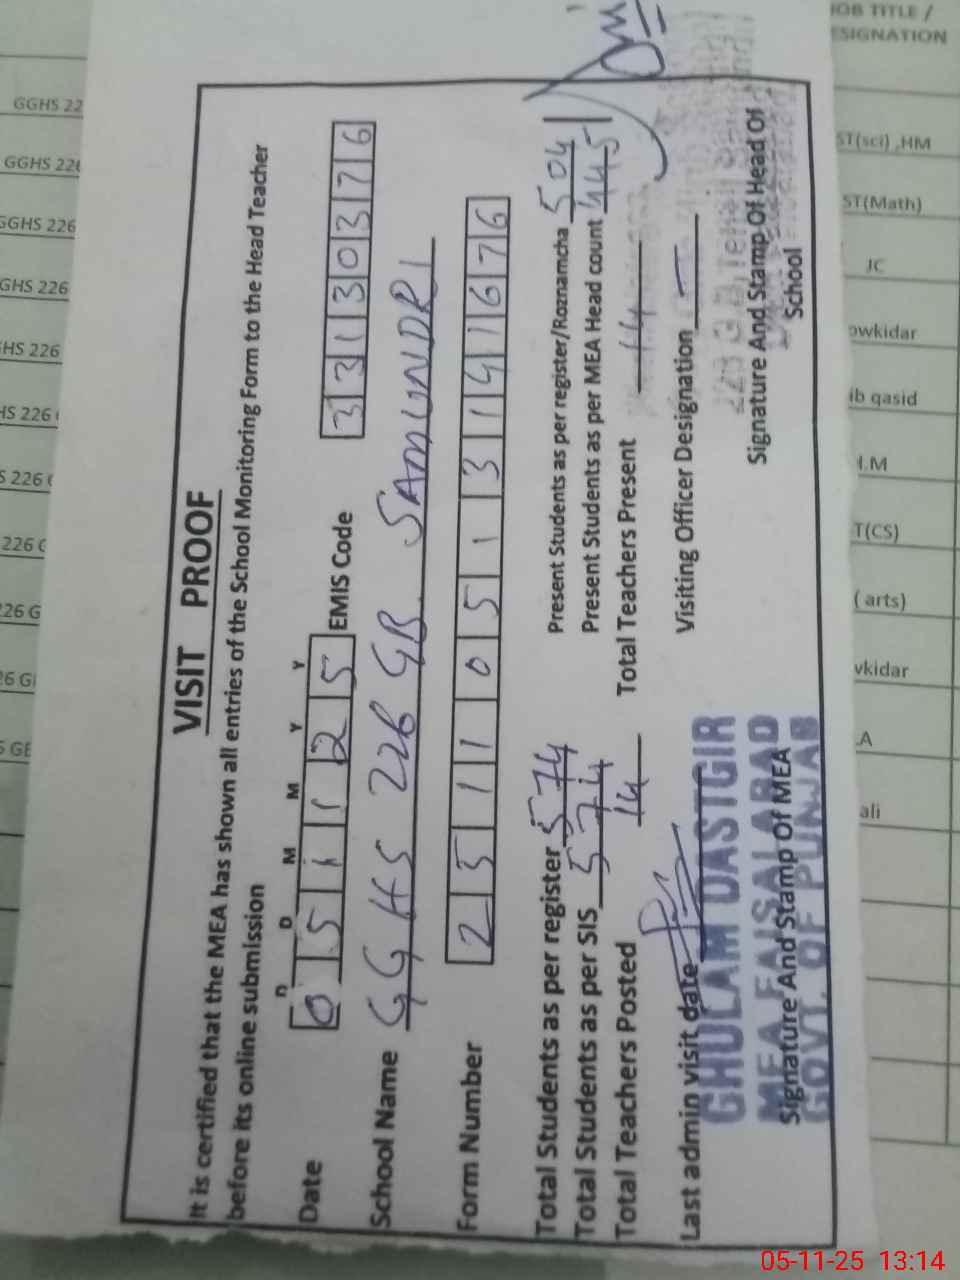 VISIT PROOF
It is certified that the MEA has shown all entries of the School Monitoring Form to the Head Teacher
before its online submission
D D M M Y Y
Date 0 5 1 1 2 5 EMIS Code 3 3 1 3 0 3 7 6
School Name GGHS 226 GB SAMUNDRI
Form Number 2 5 1 1 0 5 1 3 1 4 1 6 7 6
Total Students as per register 574 Present Students as per register/Roznamcha 504
Total Students as per SIS 574 Present Students as per MEA Head count 445
Total Teachers Posted 14 Total Teachers Present 14
Last admin visit date Visiting Officer Designation
GHULAM DASTGIR
MEA FAISALABAD
GOVT. OF PUNJAB
Signature And Stamp Of MEA
Signature And Stamp Of Head Of
School
JOB TITLE /
ESIGNATION
GGHS 22
ST(sci) ,HM
GGHS 226
ST(Math)
GGHS 226
JC
GHS 226
owkidar
HS 226
ib qasid
HS 226
I.M
S 226
T(CS)
226 G
( arts)
26 G
vkidar
6 G
.A
GE
ali
05-11-25 13:14